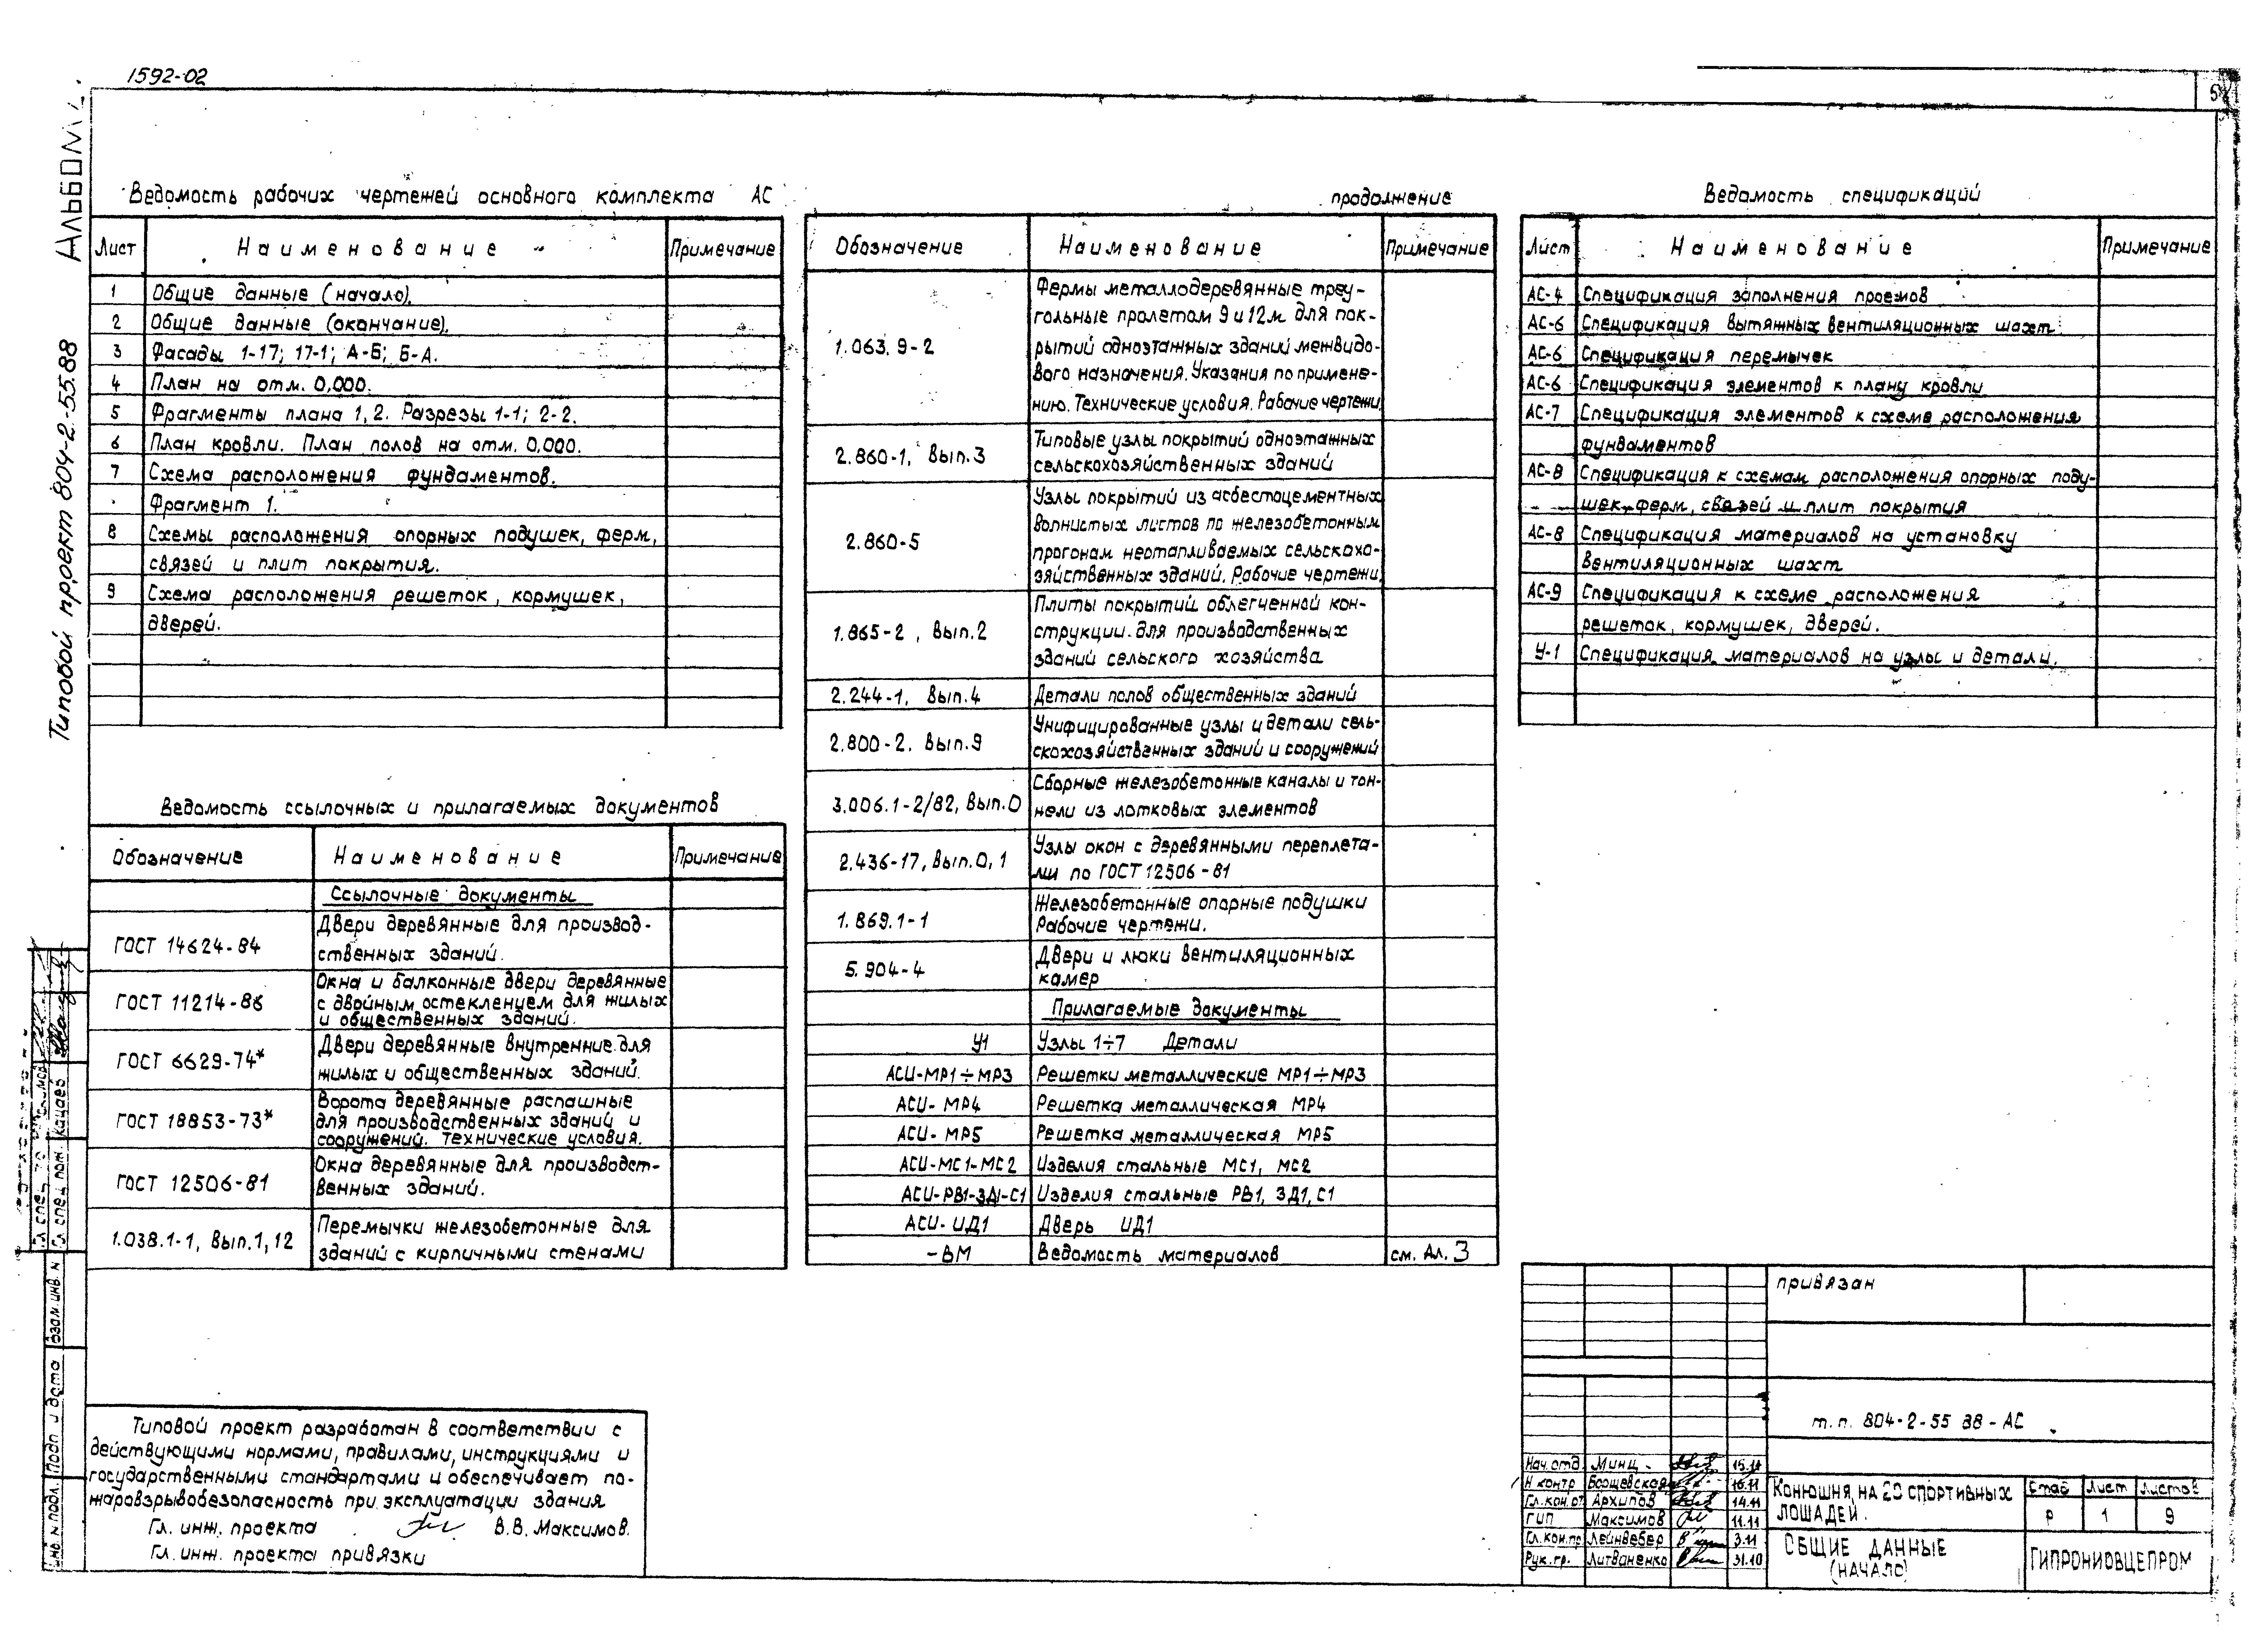 1592-02
Типовой проект 804-2-55.88
АЛЬБОМ
Ведомость рабочих чертежей основного комплекта АС
Лист Наименование Примечание
1 Общие данные (начало).
2 Общие данные (окончание).
3 Фасады 1-17; 17-1; А-Б; Б-А.
4 План на отм. 0,000.
5 Фрагменты плана 1, 2. Разрезы 1-1; 2-2.
6 План кровли. План полов на отм. 0.000.
7 Схема расположения фундаментов.
Фрагмент 1.
8 Схемы расположения опорных подушек, ферм,
связей и плит покрытия.
9 Схема расположения решеток, кормушек,
дверей.
Ведомость ссылочных и прилагаемых документов
Обозначение Наименование Примечание
Ссылочные документы
ГОСТ 14624-84 Двери деревянные для производ-
ственных зданий.
ГОСТ 11214-86 Окна и балконные двери деревянные
с двойным остеклением для жилых
и общественных зданий.
ГОСТ 6629-74* Двери деревянные внутренние для
жилых и общественных зданий.
ГОСТ 18853-73* Ворота деревянные распашные
для производственных зданий и
сооружений. Технические условия.
ГОСТ 12506-81 Окна деревянные для производст-
венных зданий.
1.038.1-1, Вып.1,12 Перемычки железобетонные для
зданий с кирпичными стенами
продолжение
Обозначение Наименование Примечание
1.063.9-2 Фермы металлодеревянные треу-
гольные пролетом 9 и 12м для пок-
рытий одноэтажных зданий межвидо-
вого назначения. Указания по примене-
нию. Технические условия. Рабочие чертежи.
2.860-1, Вып.3 Типовые узлы покрытий одноэтажных
сельскохозяйственных зданий
2.860-5 Узлы покрытий из асбестоцементных
волнистых листов по железобетонным
прогонам неотапливаемых сельскохо-
зяйственных зданий. Рабочие чертежи.
1.865-2, Вып.2 Плиты покрытий облегченной кон-
струкции для производственных
зданий сельского хозяйства
2.244-1, Вып.4 Детали полов общественных зданий
2.800-2. Вып.9 Унифицированные узлы и детали сель-
скохозяйственных зданий и сооружений
3.006.1-2/82, Вып.0 Сборные железобетонные каналы и тон-
нели из лотковых элементов
2.436-17, Вып.0,1 Узлы окон с деревянными переплета-
ми по ГОСТ 12506-81
1.869.1-1 Железобетонные опорные подушки
Рабочие чертежи.
5.904-4 Двери и люки вентиляционных
камер
Прилагаемые документы
У1 Узлы 1÷7 Детали
АСИ-МР1÷МР3 Решетки металлические МР1÷МР3
АСИ-МР4 Решетка металлическая МР4
АСИ-МР5 Решетка металлическая МР5
АСИ-МС1-МС2 Изделия стальные МС1, МС2
АСИ-РВ1-ЗД1-С1 Изделия стальные РВ1, ЗД1, С1
АСИ-ИД1 Дверь ИД1
-ВМ Ведомость материалов см. Ал. 3
Ведомость спецификаций
Лист Наименование Примечание
АС-4 Спецификация заполнения проемов
АС-6 Спецификация вытяжных вентиляционных шахт
АС-6 Спецификация перемычек
АС-6 Спецификация элементов к плану кровли
АС-7 Спецификация элементов к схеме расположения
фундаментов
АС-8 Спецификация к схемам расположения опорных поду-
шек, ферм, связей и плит покрытия
АС-8 Спецификация материалов на установку
вентиляционных шахт
АС-9 Спецификация к схеме расположения
решеток, кормушек, дверей.
У-1 Спецификация материалов на узлы и детали.
Типовой проект разработан в соответствии с
действующими нормами, правилами, инструкциями и
государственными стандартами и обеспечивает по-
жаровзрывобезопасность при эксплуатации здания
Гл. инж. проекта В.В. Максимов.
Гл. инж. проекта привязки
привязан
т.п. 804-2-55 88-АС
Нач.отд. Минц 15.11
Н контр Борщевская 16.11
Гл.кон.от Архипов 14.11
ГИП Максимов 11.11
Гл.кон.пр Лейнвебер 3.11
Рук.гр. Литваненко 31.10
Конюшня на 20 спортивных
лошадей.
Стад Лист Листов
Р 1 9
ОБЩИЕ ДАННЫЕ
(НАЧАЛО)
ГИПРОНИОВЦЕПРОМ
Инв. N подл. Подп и дата Взам. инв. N
Гл. спец. пож. Кацаев